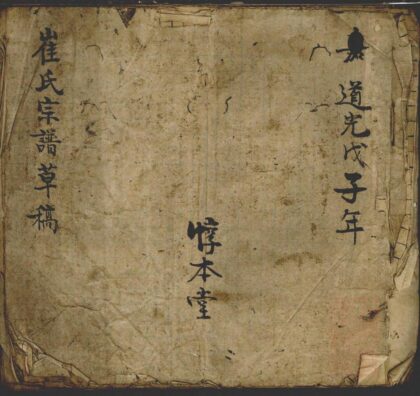 嘉道光戊子年
惇本堂
崔氏宗譜草稿